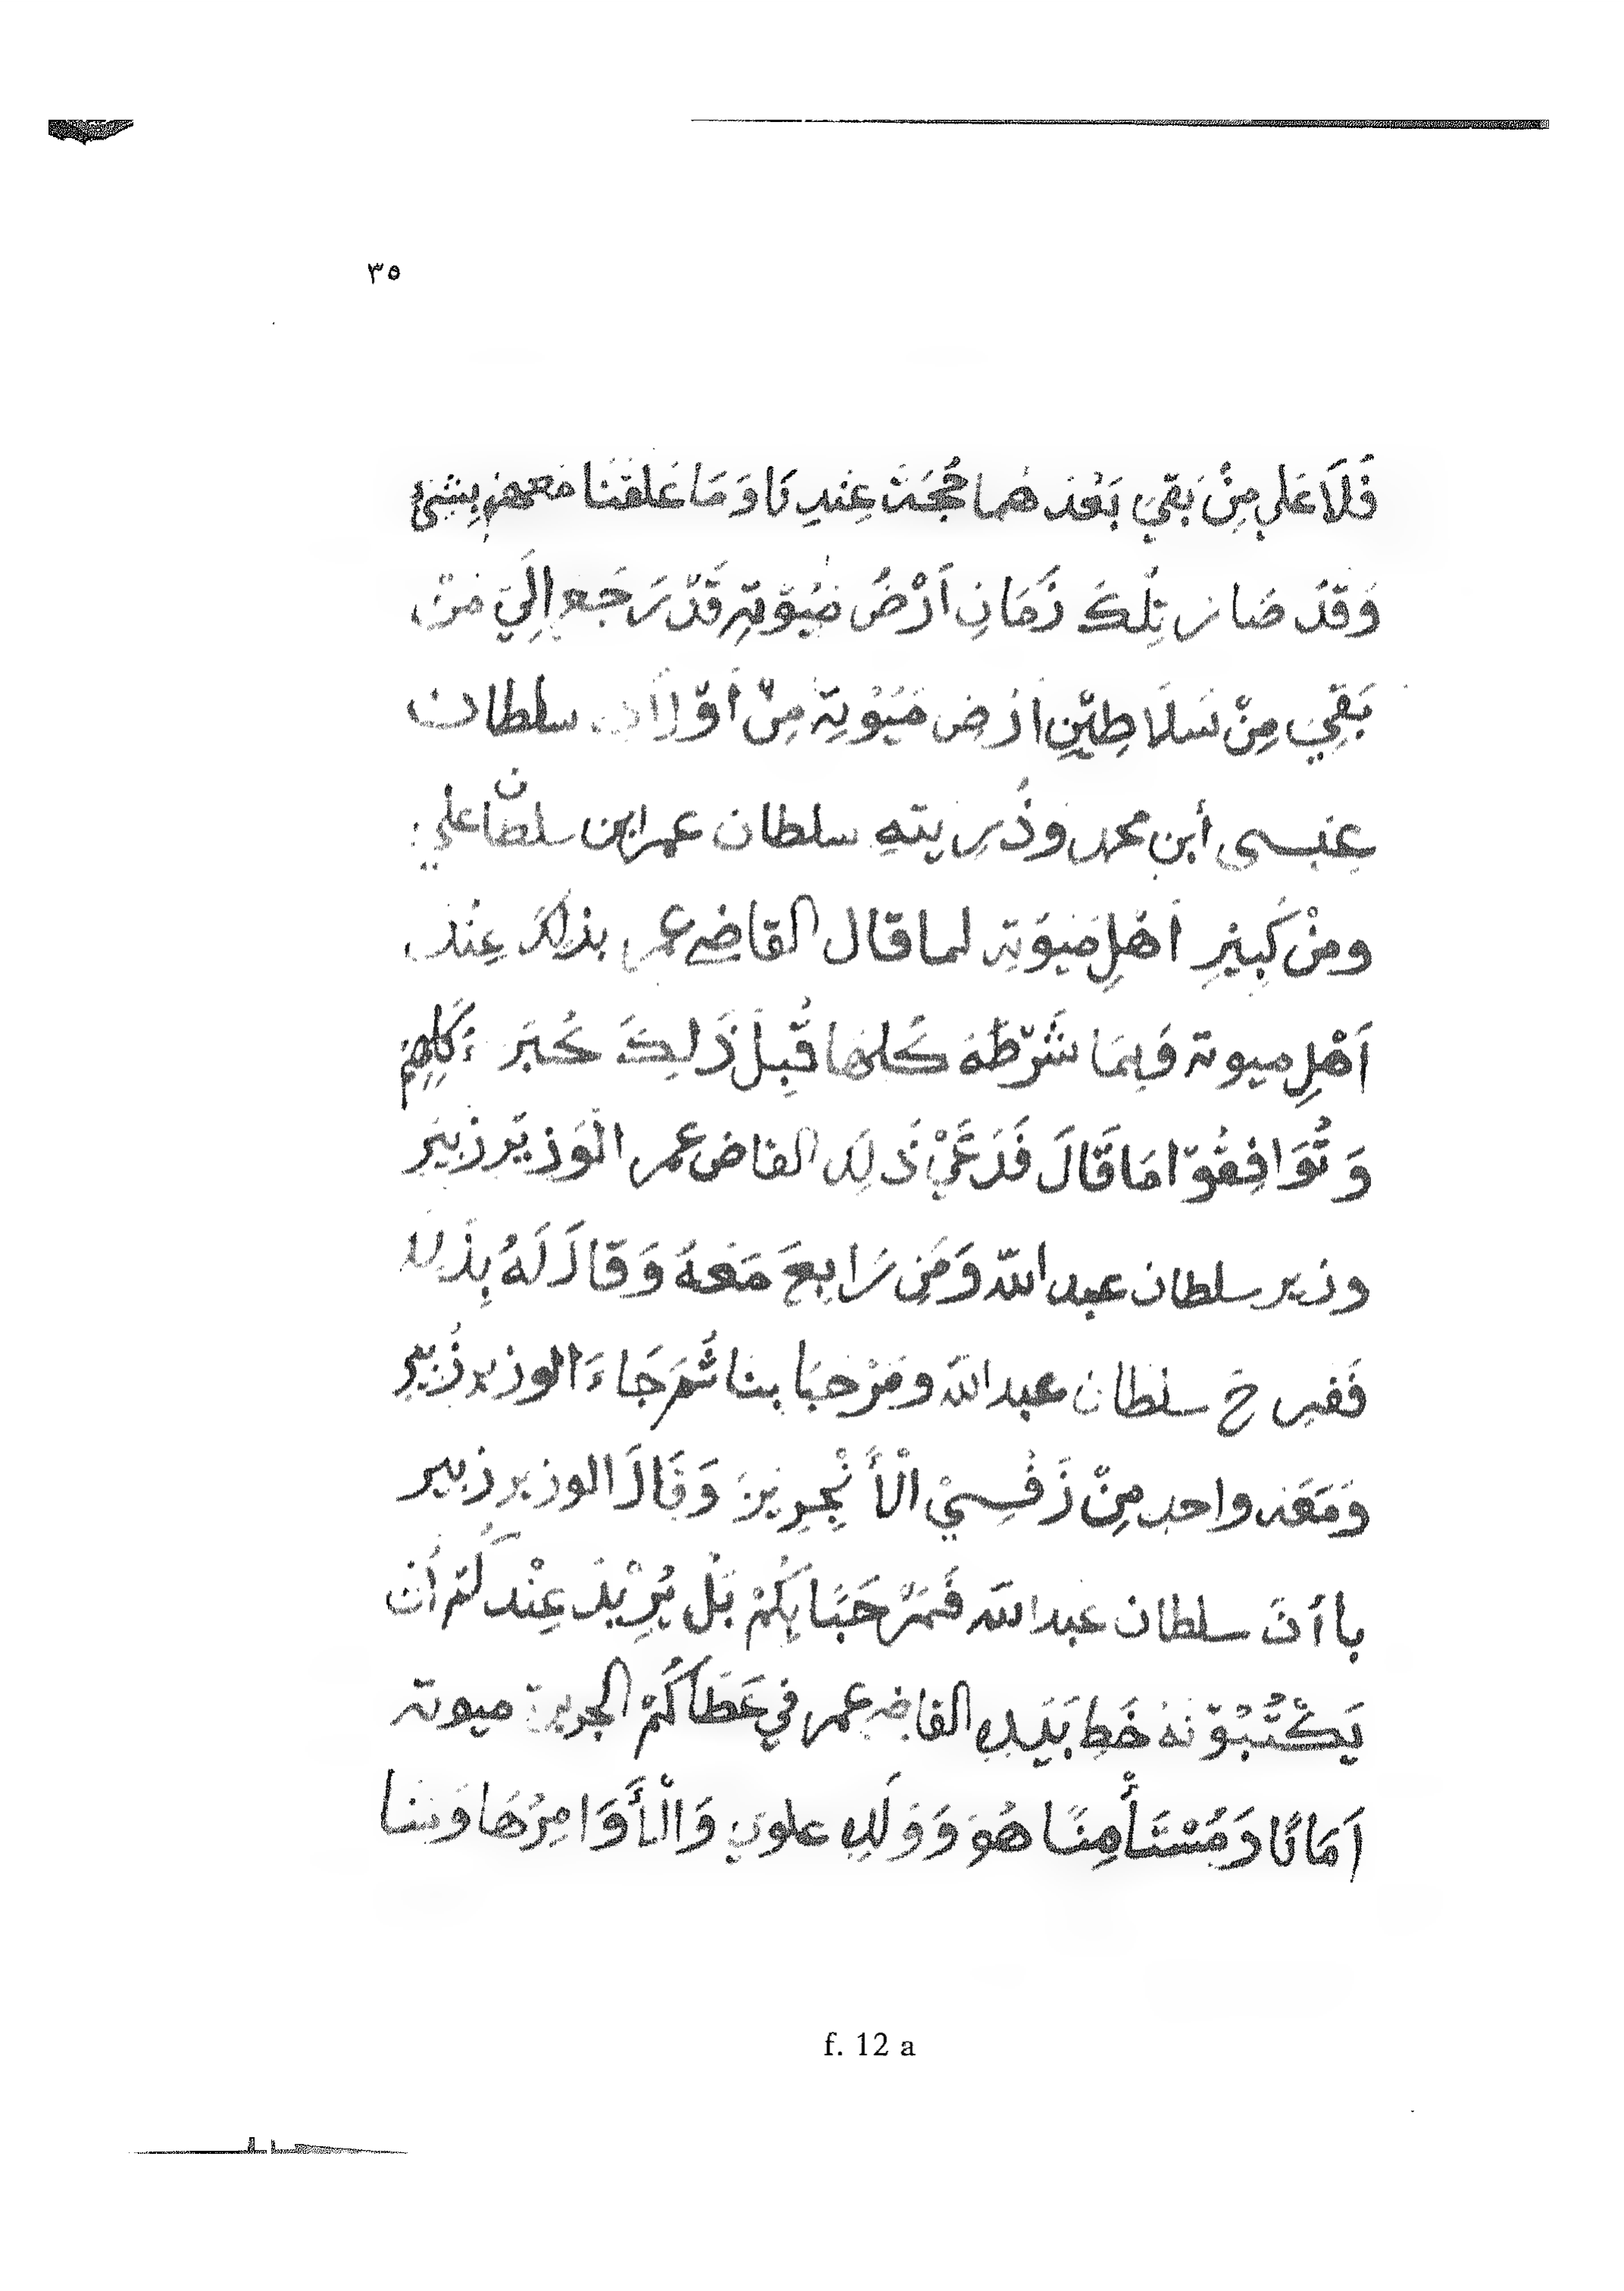 ٣٥
فَلَا عَلي مِنْ بَقيَ بَعْدَ هُما حُجَةَ عِندِنَا وَمَا عَلَقْنَا مَعهمْ بِشَيْءٍ
وَقَدْ صَارَ تِلْكَ زَمَانِ اَرْضُ مَيُوْتِهِ قَدّ رَجَعِ اِلَيَ مَنْ
بَقِيَ مِنْ سَلَاطِيْنِ اَرْضِ مَيُوْتِة مِنْ اَوْلَادِ سلطان
عِيْسى أبن محمد وذُرِيتهِ سلطان عمر ابن سلطان علي
ومنْ كَبِيْرِ اَهْلِ مَيوَتِه لما قال القاضي عمر بذلك عِنْدَ
اَهْلِ ميوته فِيمَا شَرَّطَهُ كُلهَا قُبِلَ ذَلِكَ كُبَرَءَ كلِهِمْ
وَتُوَافِقُوْا مَا قَالَ فَدَعَيْ ذَلِك القاض عمر الْوَزيْر زبَيْر
وزير سلطان عبد الله وَمَنِ رَابِعَ مَعَهُ وَقَالَ لَهُ بِذَلِك
فَفرِحَ سلطان عبد الله ومَرْحبَا بِنا ثُمَ جَاءَ الوزير زُبَير
وَمَعَه واحد مِنْ نَفْسِيْ الْأَنْجِرِيْزَ وَقَالَ الوزير زبير
با أنَ سلطان عبد الله فَمَرْحَبًا بِكُمْ بَلْ يُرِيْدُ عِنْدَكُمْ أن
يَكْتُبُوْنَهُ خَط بَيَدِهِ القاضي عمر في عَطَاكُمْ الجريرة ميوته
اَمَانًا وَمُسْتَأْمِنًا هُوَ وَوَلَدِ علوي وَالْأَوَامِرُهَا وَبننا
f. 12 a